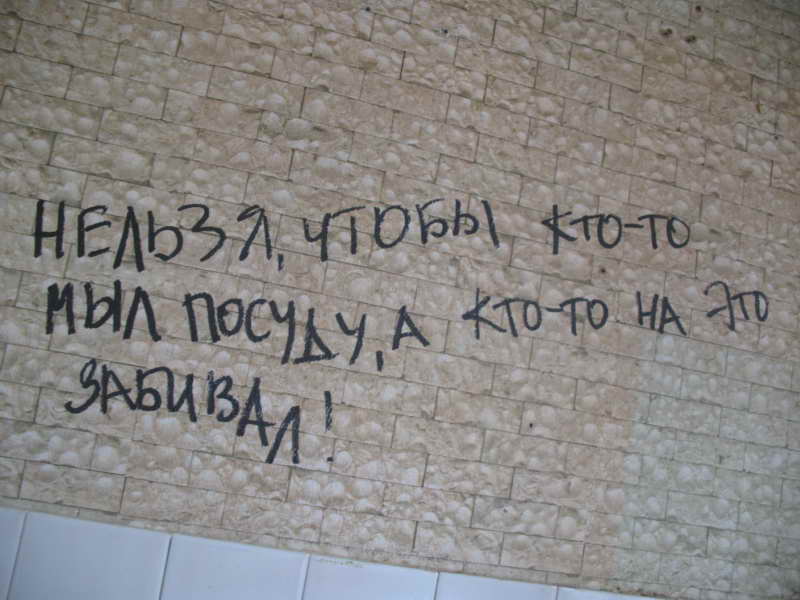 НЕЛЬЗЯ, ЧТОБЫ КТО-ТО
МЫЛ ПОСУДУ, А КТО-ТО НА ЭТО
ЗАБИВАЛ!